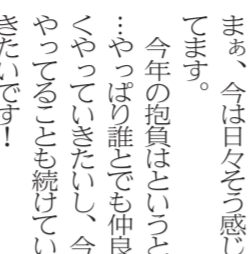 まぁ、今は日々そう感じ
てます。
　今年の抱負はというと
…やっぱり誰とでも仲良
くやっていきたいし、今
やってることも続けてい
きたいです！